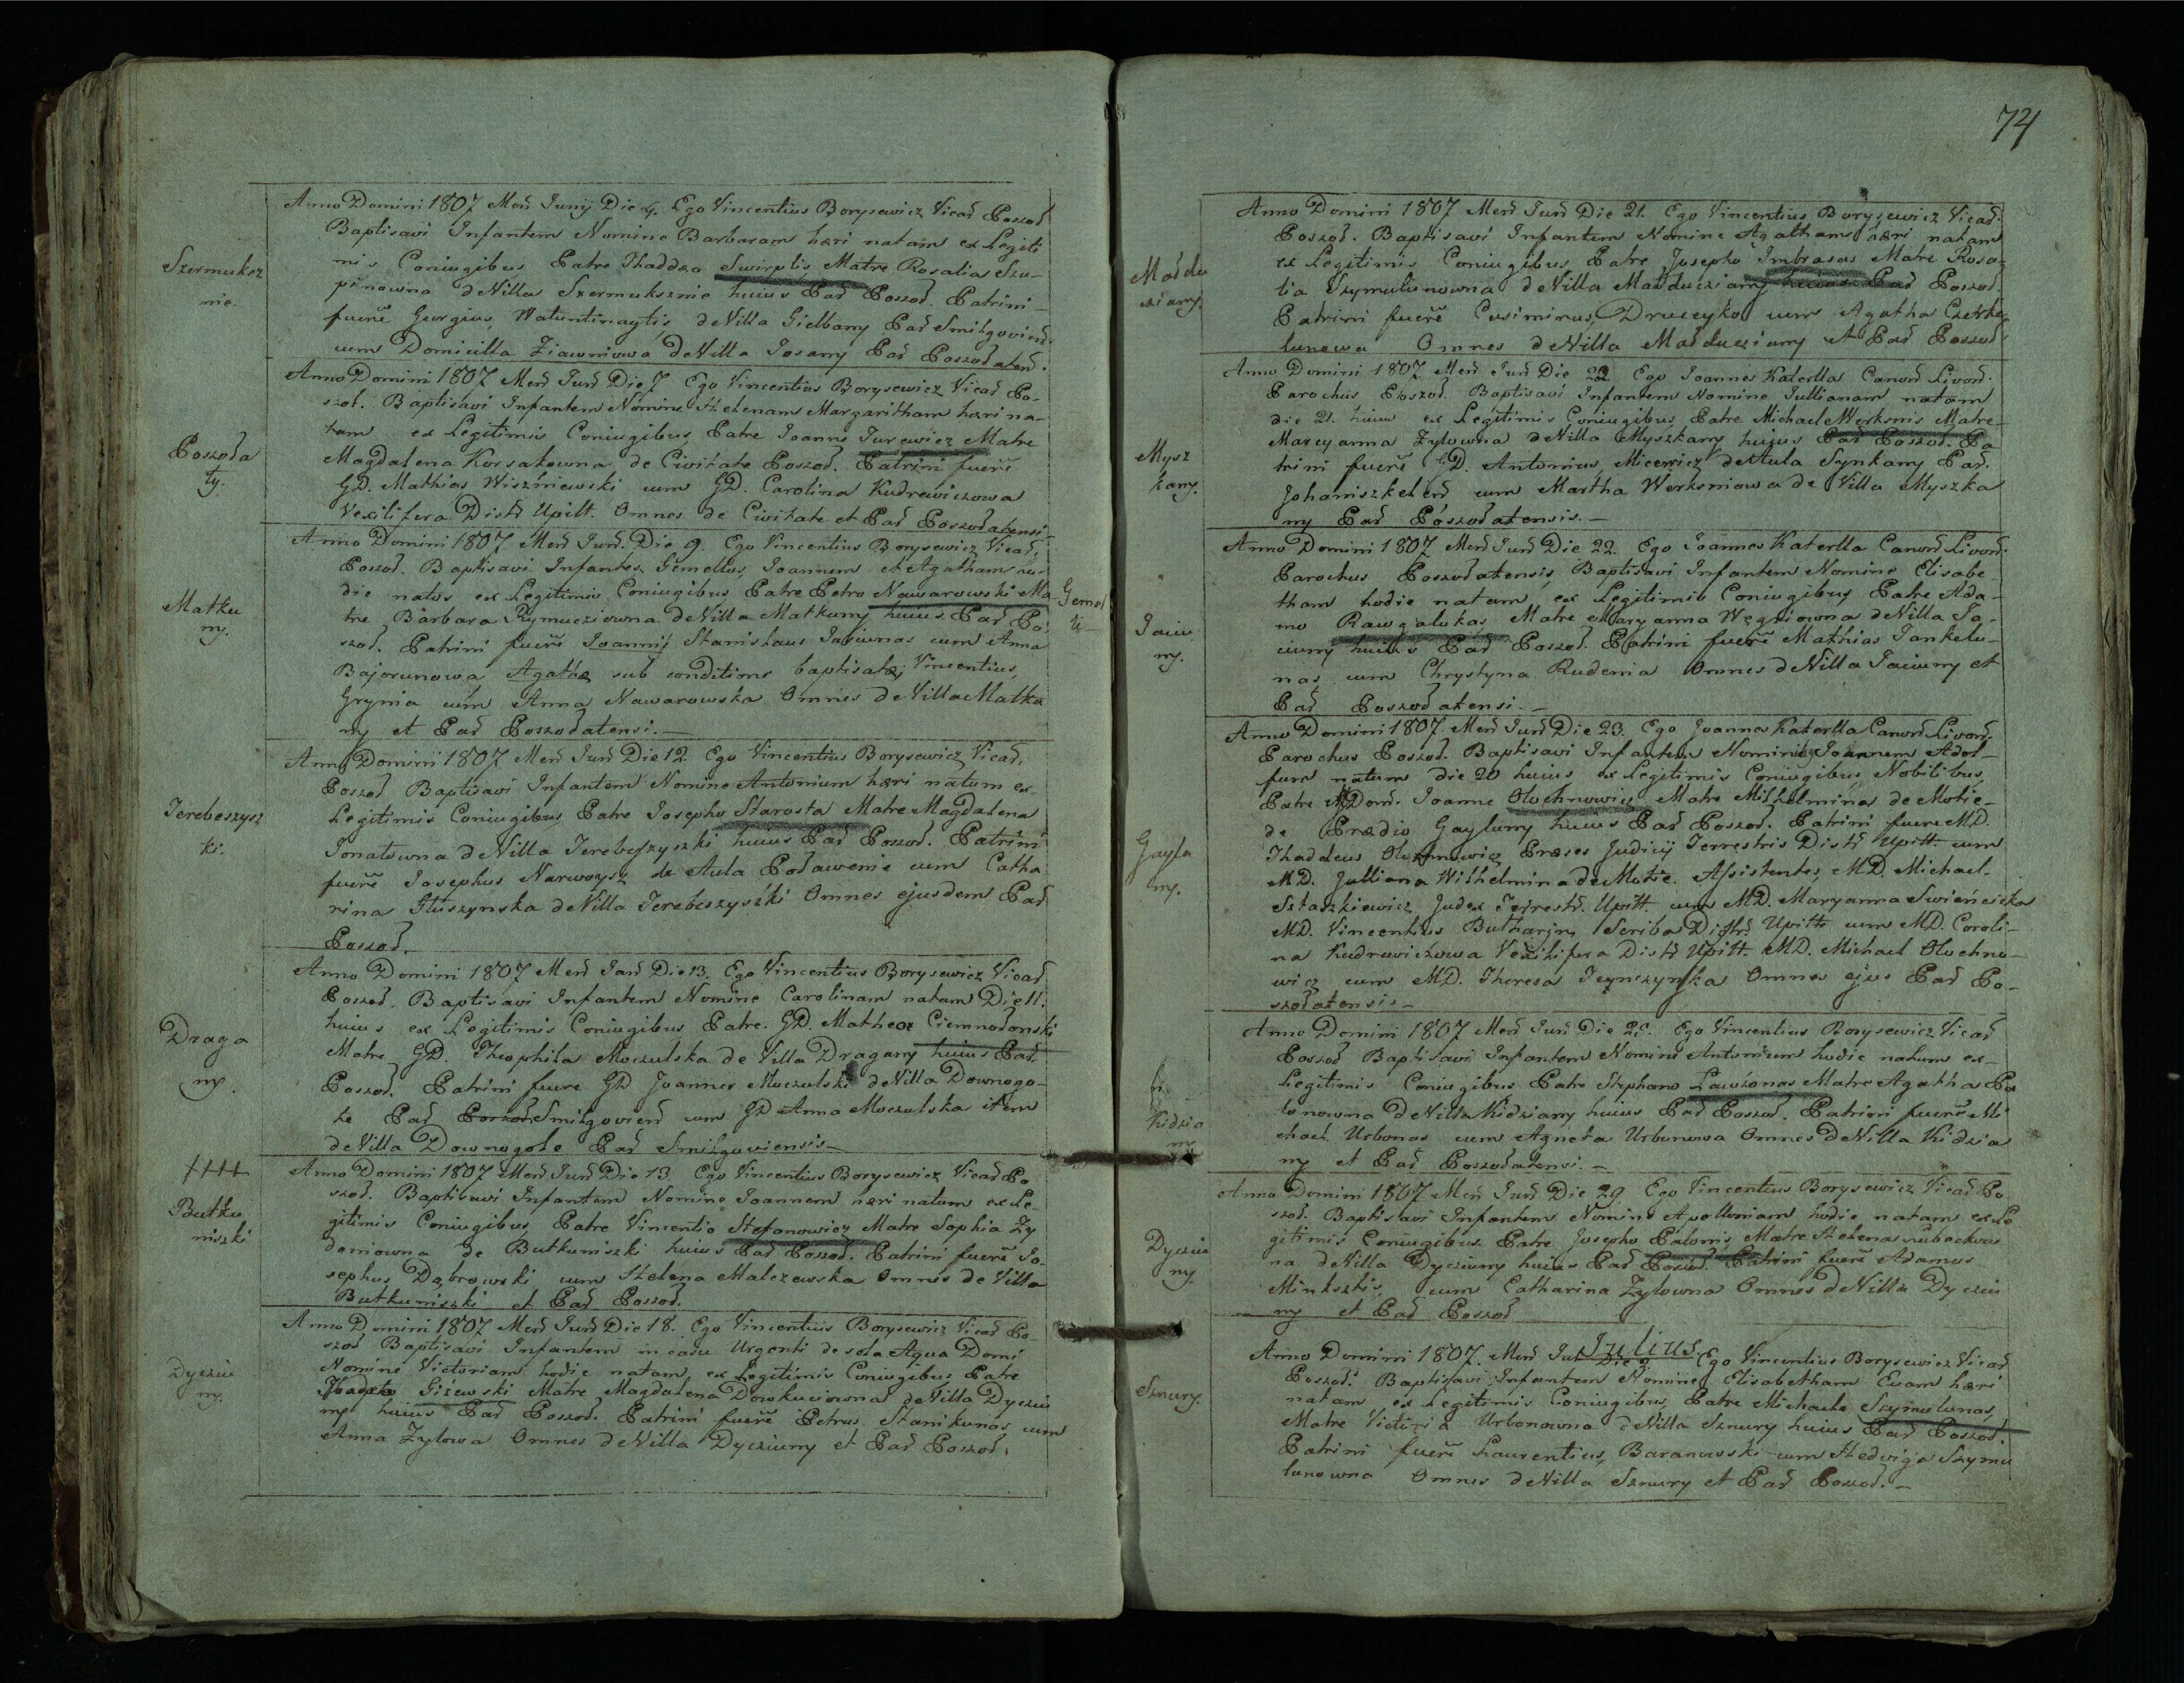 74
Szermuksz
nie.
Anno Domini 1807 Men̄ Junij Die 4. Ego Vincentius Borysewicz Vicar̄ Poszoł
Baptisavi Infantem Nomine Barbaram hæri natam ex Legiti
mis Coniugibus Patre Thaddæo Swirplis Matre Rosalia Szu-
pinowna de Villa Szermuksznie huius Par̄ Poszoł. Patrini
fuere Georgius Watuntinaytis de Villa Gielbany Par̄ Smilgovien̄.
cum Domicilla Ziawniowa de Villa Josany Par̄ Poszołaten̄.
Poszoła
ty.
Anno Domini 1807 Men̄ Jun̄ Die 7 Ego Vincentius Borysewicz Vicar̄ Po-
szoł. Baptisavi Infantem Nomine Helenam Margaritham hæri na-
tam ex Legitimis Coniugibus Patre Joanne Jurewicz Matre
Magdalena Korsakowna de Civitate Poszoł. Patrini fuere
GD. Mathias Wiszniewski cum GD. Carolina Kudrewiczowa
Vexilifera Distr̄ Upitt. Omnes de Civitate et Par̄ Poszołatensi
Matku
ny.
Anno Domini 1807 Men̄ Jun̄. Die 9. Ego Vincentius Borysewicz Vicar̄.
Poszoł. Baptisavi Infantes Gemellos Joannem et Agatham ho-
die natos ex Legitimis Coniugibus Patre Petro Nawarowski Ma-
Gemel
li
tre Barbara Rymucziowna de Villa Matkuny huius Par̄ Po-
szoł. Patrini fuere Joannis Stanislaus Jasiunas cum Anna
Bajorunowa Agathæ sub conditione baptisatæ Vincentius
Grynia cum Anna Nawarowska Omnes de Villa Matku
ny et Par̄ Poszołatensi.—
Jerebeszysz
ki.
Anno Domini 1807 Men̄ Jun̄ Die 12. Ego Vincentius Borysewicz Vicar̄.
Poszoł Baptisavi Infantem Nomine Antonium hæri natum ex
Legitimis Coniugibus Patre Josepho Starosta Matre Magdalena
Jonatowna de Villa Jerebeszyszki huius Par̄ Poszoł. Patrini
fuere Josephus Narwoysz de Aula Poławenie cum Catha
rina Głuszynska de Villa Jerebeszyszki Omnes ejusdem Par̄
Poszoł.
Draga
ny.
Anno Domini 1807 Men̄ Jun̄ Die 13. Ego Vincentius Borysewicz Vicar̄
Poszoł. Baptisavi Infantem Nomine Carolinam natam Die 11.
huius ex Legitimis Coniugibus Patre. GD. Matheo Ciemnołonski
Matre GD. Theophila Moczulska de Villa Dragany huius Par̄
Poszoł. Patrini fuere GD Joannes Moczulski de Villa Downogo-
łe Par̄ Poszoł Smilgovien̄ cum GD Anna Moczulska item
de Villa Downogołe Par̄ Smilgoviensis—
++++
Butku
niszki
Anno Domini 1807 Men̄ Jun̄ Die 13. Ego Vincentius Borysewicz Vicar̄ Po
szoł. Baptisavi Infantem Nomine Joannem hæri natum ex Le-
gitimis Coniugibus Patre Vincentio Stefanowicz Matre Sophia Zy
doniowna de Butkuniszki huius Par̄ Poszoł. Patrini fuere Jo-
sephus Dąbrowski cum Helena Malczewska Omnes de Villa
Butkuniszki et Par̄ Poszoł.
Dycziu
ny.
Anno Domini 1807 Men̄ Jun̄ Die 18. Ego Vincentius Borysewicz Vicar̄ Po-
szoł Baptisavi Infantem in casu Urgenti de sola Aqua Domi
Nomine Victoriam hodie natam, ex Legitimis Coniugibus Patre
Giżewski Matre Magdalena Dowkucziowna de Villa Dycziu
ny huius Par̄ Poszoł. Patrini fuere Petrus Stanikunas cum
Anna Zyłowa Omnes de Villa Dycziuny et Par̄ Poszoł.
Małdu
cziany.
Anno Domini 1807 Men̄ Jun̄ Die 21. Ego Vincentius Borysewicz Vicar̄.
Poszoł. Baptisavi Infantem Nomine Agatham hæri natam
ex Legitimis Coniugibus Patre Josepho Imbrasas Matre Rosa-
lia Szymulunowna de Villa Małducziany huius Par̄ Poszoł.
Patrini fuere Casimirus Druceyko cum Agatha
lunowa Omnes de Villa Małducziany et Par̄ Poszoł
Mysz
kany.
Anno Domini 1807 Men̄ Jun̄ Die 22 Ego Joannes Katerlla Canon̄ Livon̄.
Parochus Poszoł. Baptisavi Infantem Nomine Jullianam natam
die 21. huius ex Legitimis Coniugibus Patre Michael Werksnis Matre
Maryanna Zyłowna de Villa Myszkany hujus Par̄ Poszoł. Pa
trini fuere GD. Antonius Micewicz de Aula Synkany Par̄.
Johaniszkelen̄ cum Martha Werksniowa de Villa Myszka
ny Par̄ Poszołatensis.—
Jaciu
ny.
Anno Domini 1807 Men̄ Jun̄ Die 22. Ego Joannes Katerlla Canon̄ Livon̄.
Parochus Poszołatensis Baptisavi Infantem Nomine Elisabe-
tham hodie natam, ex Legitimis Coniugibus Patre Ada-
mo Rawgalukas Matre Maryanna Węgriowna de Villa Ja-
ciuny huius Par̄ Poszoł. Patrini fuere Mathias Jankelu-
nas cum Chrystyna Rudenia Omnes de Villa Jaciuny et
Par̄ Poszołatensi.—
Gayla
ny.
Anno Domini 1807. Men̄ Jun̄ Die 23. Ego Joannes Katerlla Canon̄ Livon̄
Parochus Poszoł. Baptisavi Infantem Nomine Joannem Adol-
fum natum die 20 huius ex Legitimis Coniugibus Nobilibus
Patre MDom. Joanne Olechnowicz Matre Wilhelmina de Motie-
de Prædio Gaylany huius Par̄ Poszoł. Patrini fuere MD.
Thaddeus Olechnowicz Præses Judicij Terrestris Distr̄ Upitt. cum
MD. Julliana Wilhelmina de Motie. Assistentes MD. Michael
Staszkiewicz Judex Terrestr̄. Upitt. cum MD. Maryanna Swiencicka
MD. Vincentius Butharyn Scriba Distr̄. Upitt. cum MD. Caroli-
na Kudrewiczowa Vexilifera Distr̄ Upitt. MD. Michael Olechno-
wicz cum MD. Theresa Omnes ejus Par̄ Po-
szołatensis—
Kidzia
ny
Anno Domini 1807 Men̄ Jun̄ Die 25. Ego Vincentius Borysewicz Vicar̄
Poszoł Baptisavi Infantem Nomine Antonium hodie natum ex
Legitimis Coniugibus Patre Stephano Lawżonas Matre Agatha Pa
lonowna de Villa Kidziany huius Par̄ Poszoł. Patrini fuere Mi
chael Urbonas cum Agneta Urbonowa Omnes de Villa Kidzia
ny et Par̄ Poszołatensi.—
Dycziu
ny.
Anno Domini 1807 Men̄ Jun̄ Die 29. Ego Vincentius Borysewicz Vicar̄ Po-
szoł. Baptisavi Infantem Nomine Apolloniam hodie natam ex Le
gitimis Coniugibus Patre Josepho Palonis Matre Helena
na de Villa Dycziuny huius Par̄ Poszoł. Patrini fuere Adamus
Minkszkis cum Catharina Zyłowna Omnes de Villa Dycziu
ny et Par̄ Poszoł
Julius.
Sznury.
Anno Domini 1807. Men̄ Jul Die 2. Ego Vincentius Borysewicz Vicar̄
Poszoł. Baptisavi Infantem Nomine Elisabetham Evam hæri
natam ex Legitimis Coniugibus Patre Michaele Szymulunas,
Matre Victoria Urbonowna de Villa Sznury huius Par̄ Poszoł.
Patrini fuere Laurentius Baranowski cum Hedwiga Szymu
lunowna Omnes de Villa Sznury et Par̄ Poszoł.—